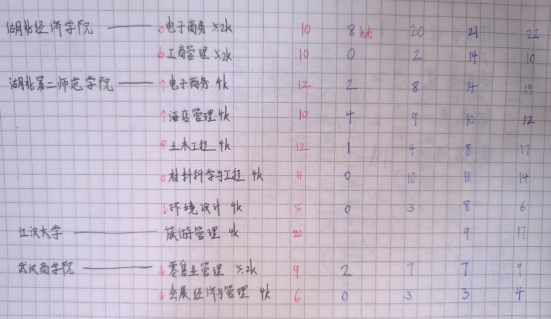 湖北经济学院 —— ○电子商务 5.2k 10 8 hot 20 21 22
○工商管理 5.2k 10 0 2 14 10
湖北第二师范学院 —— ↑电子商务 4k 12 2 8 4 19
↑酒店管理 4k 10 4 9 10 12
↑土木工程 4k 12 1 4 8 17
○材料科学与工程 4k 11 0 10 11 14
↓环境设计 4k 5 0 3 8 6
江汉大学 —— 旅游管理 4k 20 9 17
武汉商学院 —— ↓零售业管理 5.2k 9 2 7 7 9
↓会展经济与管理 4k 6 0 3 3 4